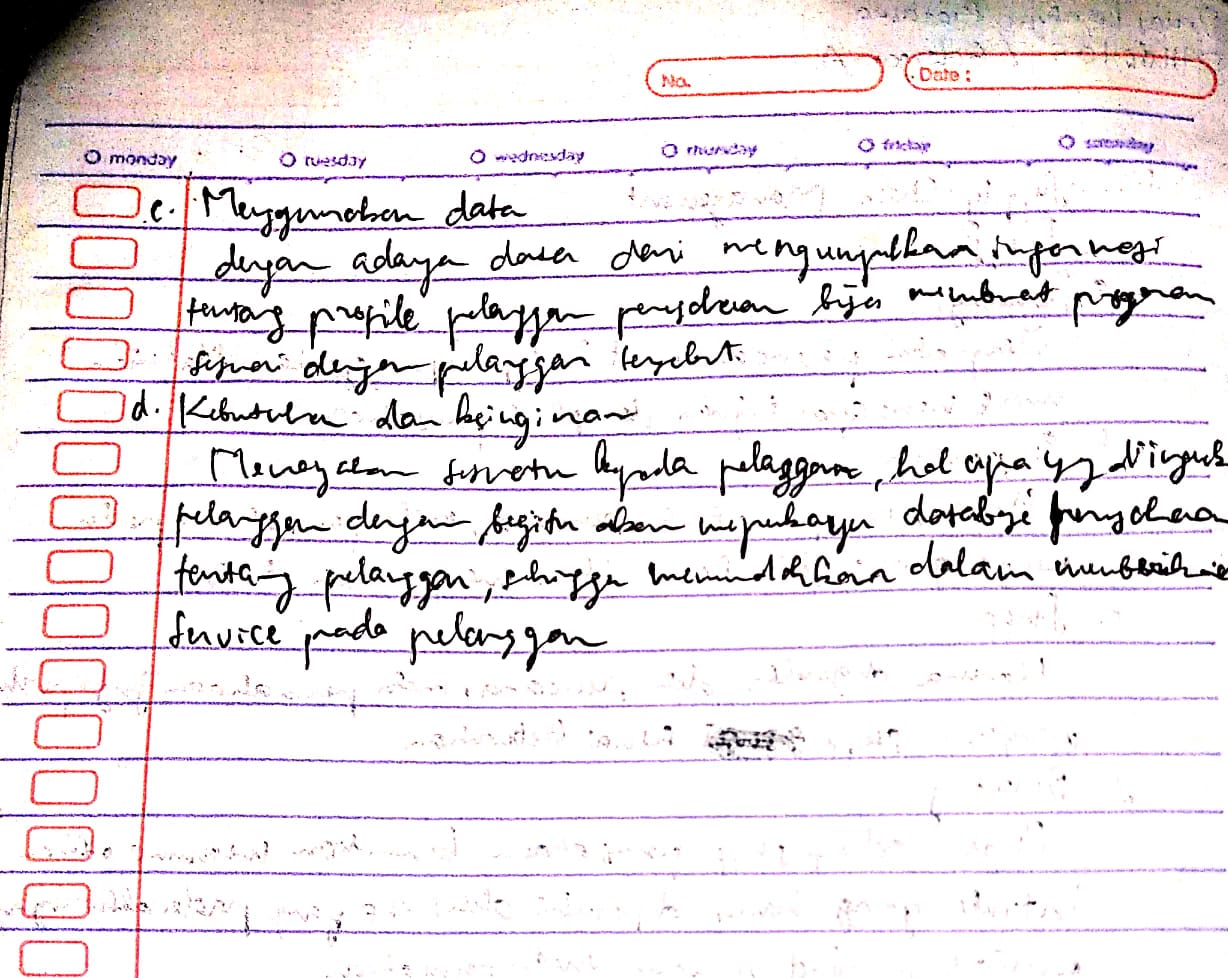 No. Date :
monday tuesday wednesday thursday friday saturday
c. Menggunakan data
dengan adaya data dari mengumpulkan informasi
tentang profile pelanggan perusahaan bisa membuat program
sesuai dengan pelanggan tersebut.
d. Kebutuhan dan keinginan
Menanyakan sesuatu kepada pelanggan, hal apa yg diinginkan
pelanggan dengan begitu akan memperkaya database perusahaan
tentang pelanggan, sehingga memudahkan dalam memberikan
service pada pelanggan